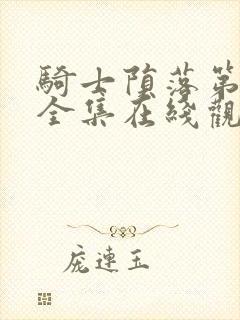 騎士墮落第
全集在綫觀
庞連玉